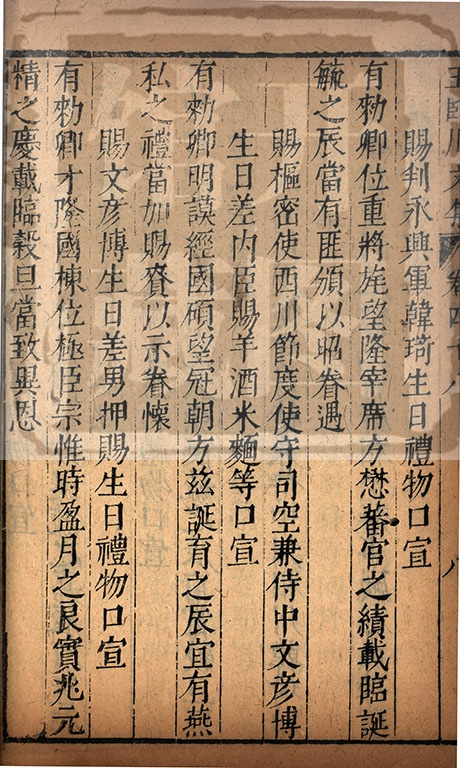 王臨川文集 卷四十八 八
賜判永興軍韓琦生日禮物口宣
有勑卿位重將旄望隆宰席方懋蕃官之績載臨誕
毓之辰當有匪頒以昭眷遇
賜樞密使西川節度使守司空兼侍中文彦博
生日差内臣賜羊酒米麵等口宣
有勑卿明謨經國碩望冠朝方兹誕育之辰宜有燕
私之禮當加賜賚以示眷懷
賜文彦博生日差男押賜生日禮物口宣
有勑卿才隆國棟位極臣宗惟時盈月之良實兆元
精之慶載臨穀旦當致異恩